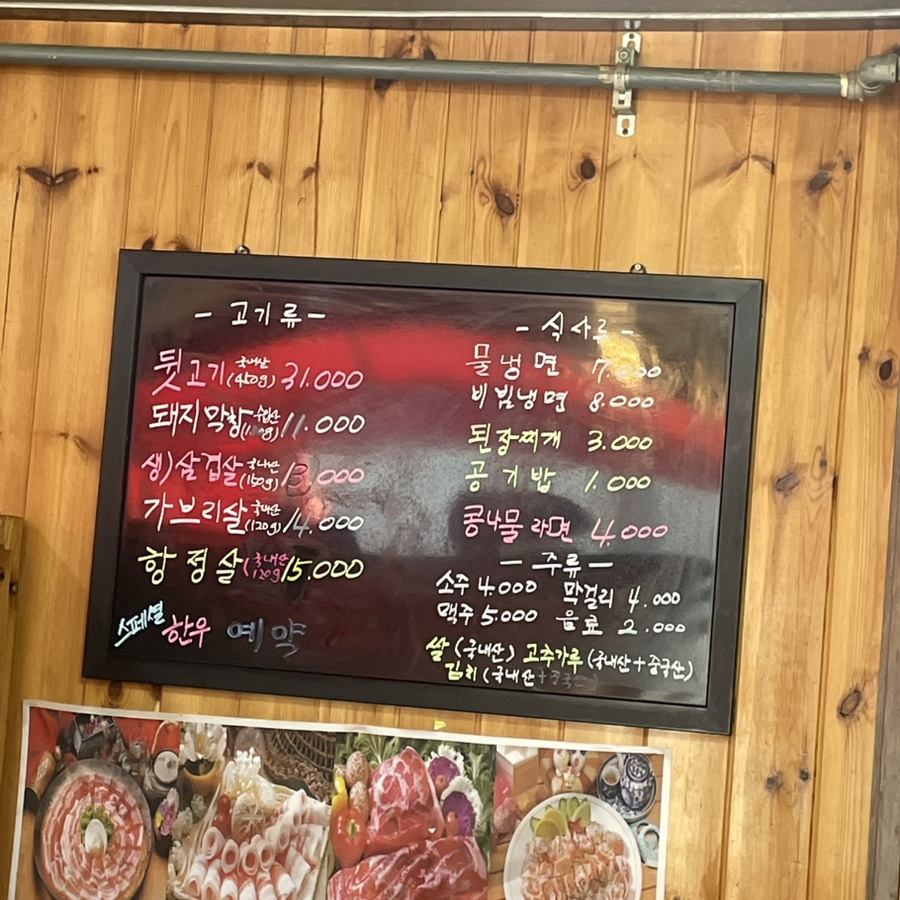 - 고기류 -
뒷고기 국내산 (450g) 31.000
돼지막창 수입산 11.000
생)삼겹살 국내산 (150g) 13.000
가브리살 국내산 (120g) 14.000
항정살 (국내산 120g) 15.000
스페셜 한우 예약
- 식사류 -
물냉면 7.000
비빔냉면 8.000
된장찌개 3.000
공기밥 1.000
콩나물라면 4.000
- 주류 -
소주 4.000 막걸리 4.000
맥주 5.000 음료 2.000
쌀 (국내산) 고추가루 (국내산+중국산)
김치 (국내산+중국산)